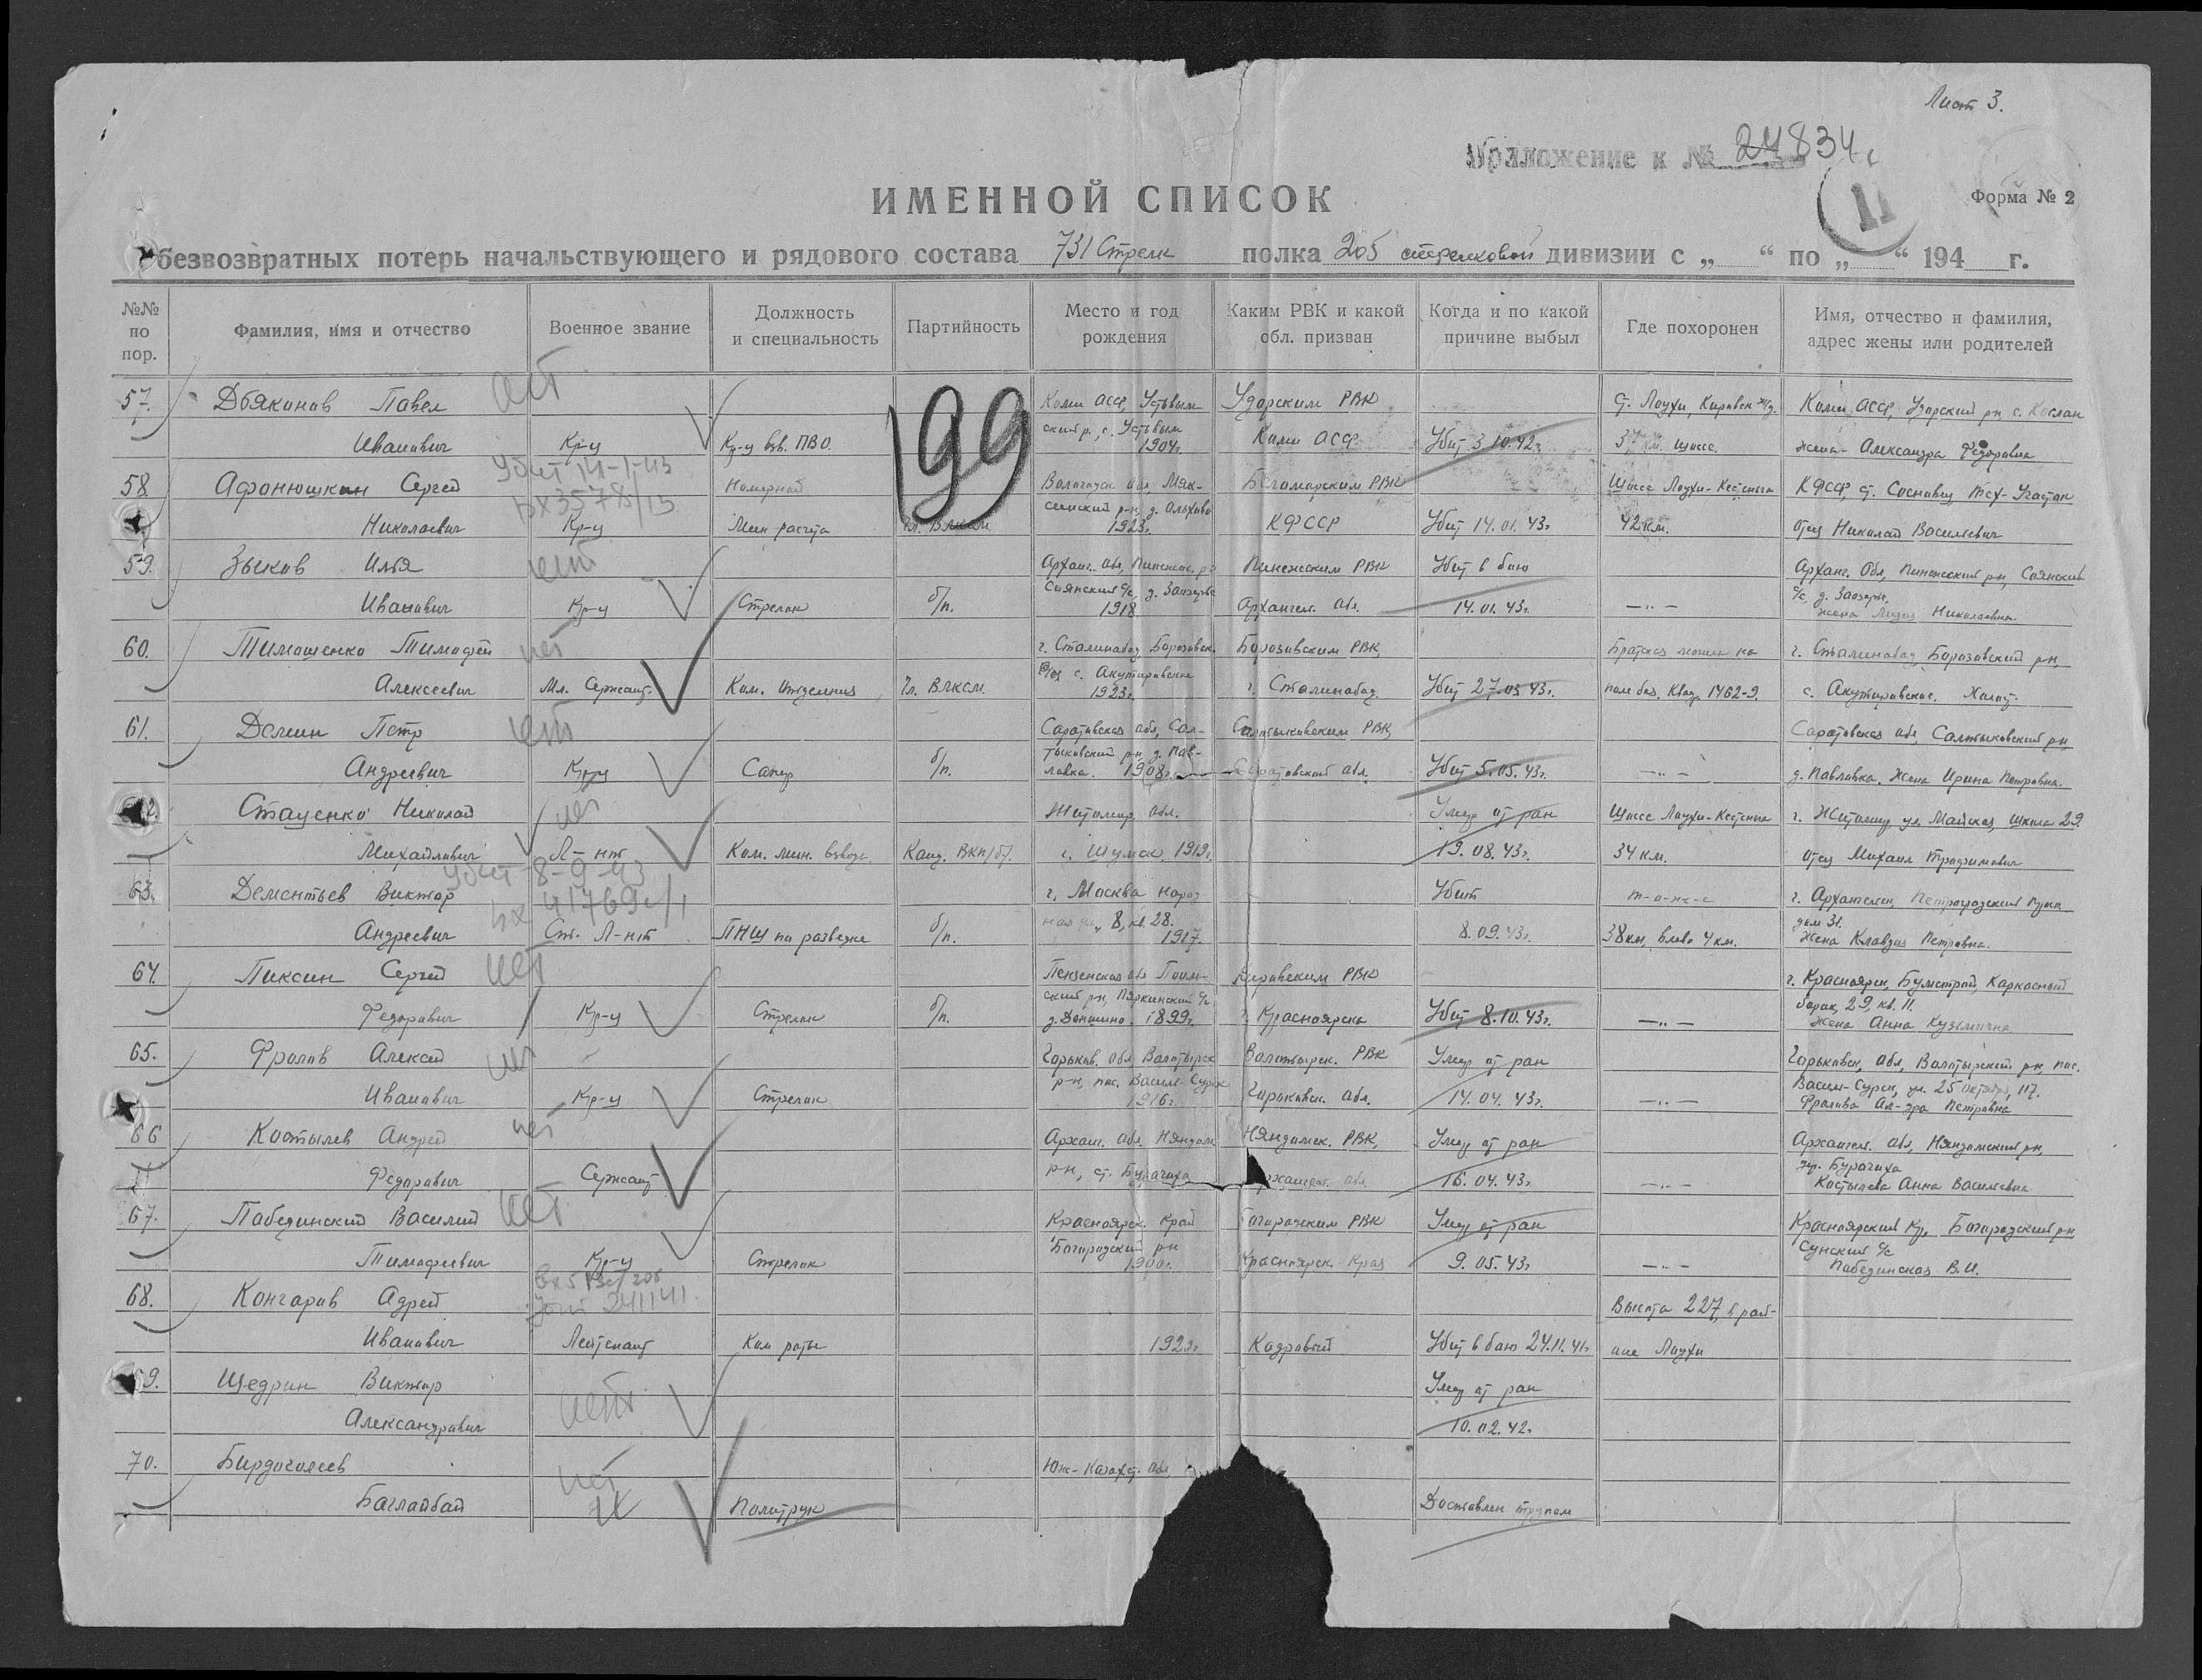 Лист 3.
Приложение к № 24834с
11
ИМЕННОЙ СПИСОК
Форма № 2
безвозвратных потерь начальствующего и рядового состава 731 Стрелк полка 205 стрелковой дивизии с „ “ по „ “ 194 г.
№№ по пор.
Фамилия, имя и отчество
Военное звание
Должность и специальность
Партийность
Место и год рождения
Каким РВК и какой обл. призван
Когда и по какой причине выбыл
Где похоронен
Имя, отчество и фамилия, адрес жены или родителей
199
57. Дбяконов Павел нет Коми АССР, Устьвым Удорским РВК ст. Лоухи, Кировск ж/д. Коми АССР, Удорский рн с. Кослан
Иванович Кр-ц Кр-ц взв. ПВО. ский р., с. Устьвым 1904г. Коми АССР Убит 3.10.42г. 34 км. шоссе. жена - Александра Федоровна
убит 14-1-43
58 Афонюшкин Сергей вх 3578/13 Номерной Вологодск. обл, Мяк- Беломорским РВК Шоссе Лоухи-Кестеньга КФССР, ст. Сосновец Тех-Участок
Николаевич Кр-ц Мин расчета Чл. ВЛКСМ 1923г. КФССР Убит 14.01.43г. 42 км. отец Николай Васильевич
59. Зыков Илья нет Арханг. обл, Пинежск. рн Пинежским РВК Убит в бою Арханг. Обл, Пинежский рн, Соянский
Иванович Кр-ц Стрелок б/п. Соянский с/с, д. Заозерье 1918 Архангел. обл. 14.01.43г. —„— с/с, д. Заозерье,
жена Лидия Николаевна.
60. Тимошенко Тимофей нет г. Сталинабад Борозовск. Борозовским РВК, Братская могила на г. Сталинабад Борозовский рн,
Алексеевич Мл. Сержант. Ком. отделения Чл. ВЛКСМ 1923г. г. Сталинабад Убит 27.03.43г. поле боя. Квад. 1462-9. с. Акутировское.
61. Демин Петр нет Саратовская обл, Сал- Салтыковским РВК, Саратовская обл, Салтыковский рн
Андреевич Кр-ц Сапер б/п. тыковский рн, д. Пав-ловка. 1908г. Саратовской обл. Убит 5.05.43г. —„— д. Павловка. Жена Ирина Петровна.
62. Стаценко Николай нет Житомир. обл. Умер от ран Шоссе Лоухи-Кестеньга г. Житомир, ул. Майская, школа 29.
Михайлович Л-нт Ком. мин. взвода. Канд. ВКП/б/. г. Шумск 1919г. 19.08.43г. 34 км. отец Михаил Трофимович
убит 8-9-43
63. Дементьев Виктор вх 41769с/1 г. Москва Народ- Убит т-о-ж-е г. Архангельск, Петроградский
Андреевич Ст. Л-нт ПНШ по разведке б/п. ная ул., 8, кв. 28. 1917. 8.09.43г. 38 км, влево 4 км. дом 31.
Жена Клавдия Петровна.
64. Пиксин Сергей нет Пензенская обл Поим- Кировским РВК г. Красноярск, Бумстрой, Каркасный
Федорович Кр-ц Стрелок б/п. ский рн, с/с д. 1899г. г. Красноярска Убит 8.10.43г. —„— барак 29, кв. 11.
Жена Анна Кузьминична
65. Фролов Алексей нет Горьков. обл, Валотырск РВК Умер от ран Горьковск, обл, рн, пос.
Иванович Кр-ц Стрелок р-н, пос. Василь-Сурск 1916г. Горьковск. обл. 14.04.43г. —„— Васил-Сурск, ул. 25 октября, 117.
Фролова Ал-дра Петровна
66 Костылев Андрей нет Арханг. обл. Няндом Няндомск. РВК, Умер от ран Архангел. обл, Няндомский рн,
Федорович Сержант р-н, ст. Бурачиха Архангел. обл. 16.04.43г. —„— Бурачиха
Костылева Анна Васильевна
67. Побединский Василий нет Красноярск. Край Боградским РВК Умер от ран Красноярский Кр, Боградский рн
Тимофеевич Кр-ц Стрелок Боградский рн 1900г. Красноярск. Края 9.05.43г. —„— Сунский с/с
Побединская В.И.
68. Кончаров Адрей убит 241141. Высота 227, в рай-
Иванович Лейтенант Ком роты Кадровый Убит в бою 24.11.41г. оне Лоухи
69. Щедрин Виктор нет Умер от ран
Александрович 10.02.42г.
70. нет Юж-Казахст. обл,
Политрук Доставлен трупом